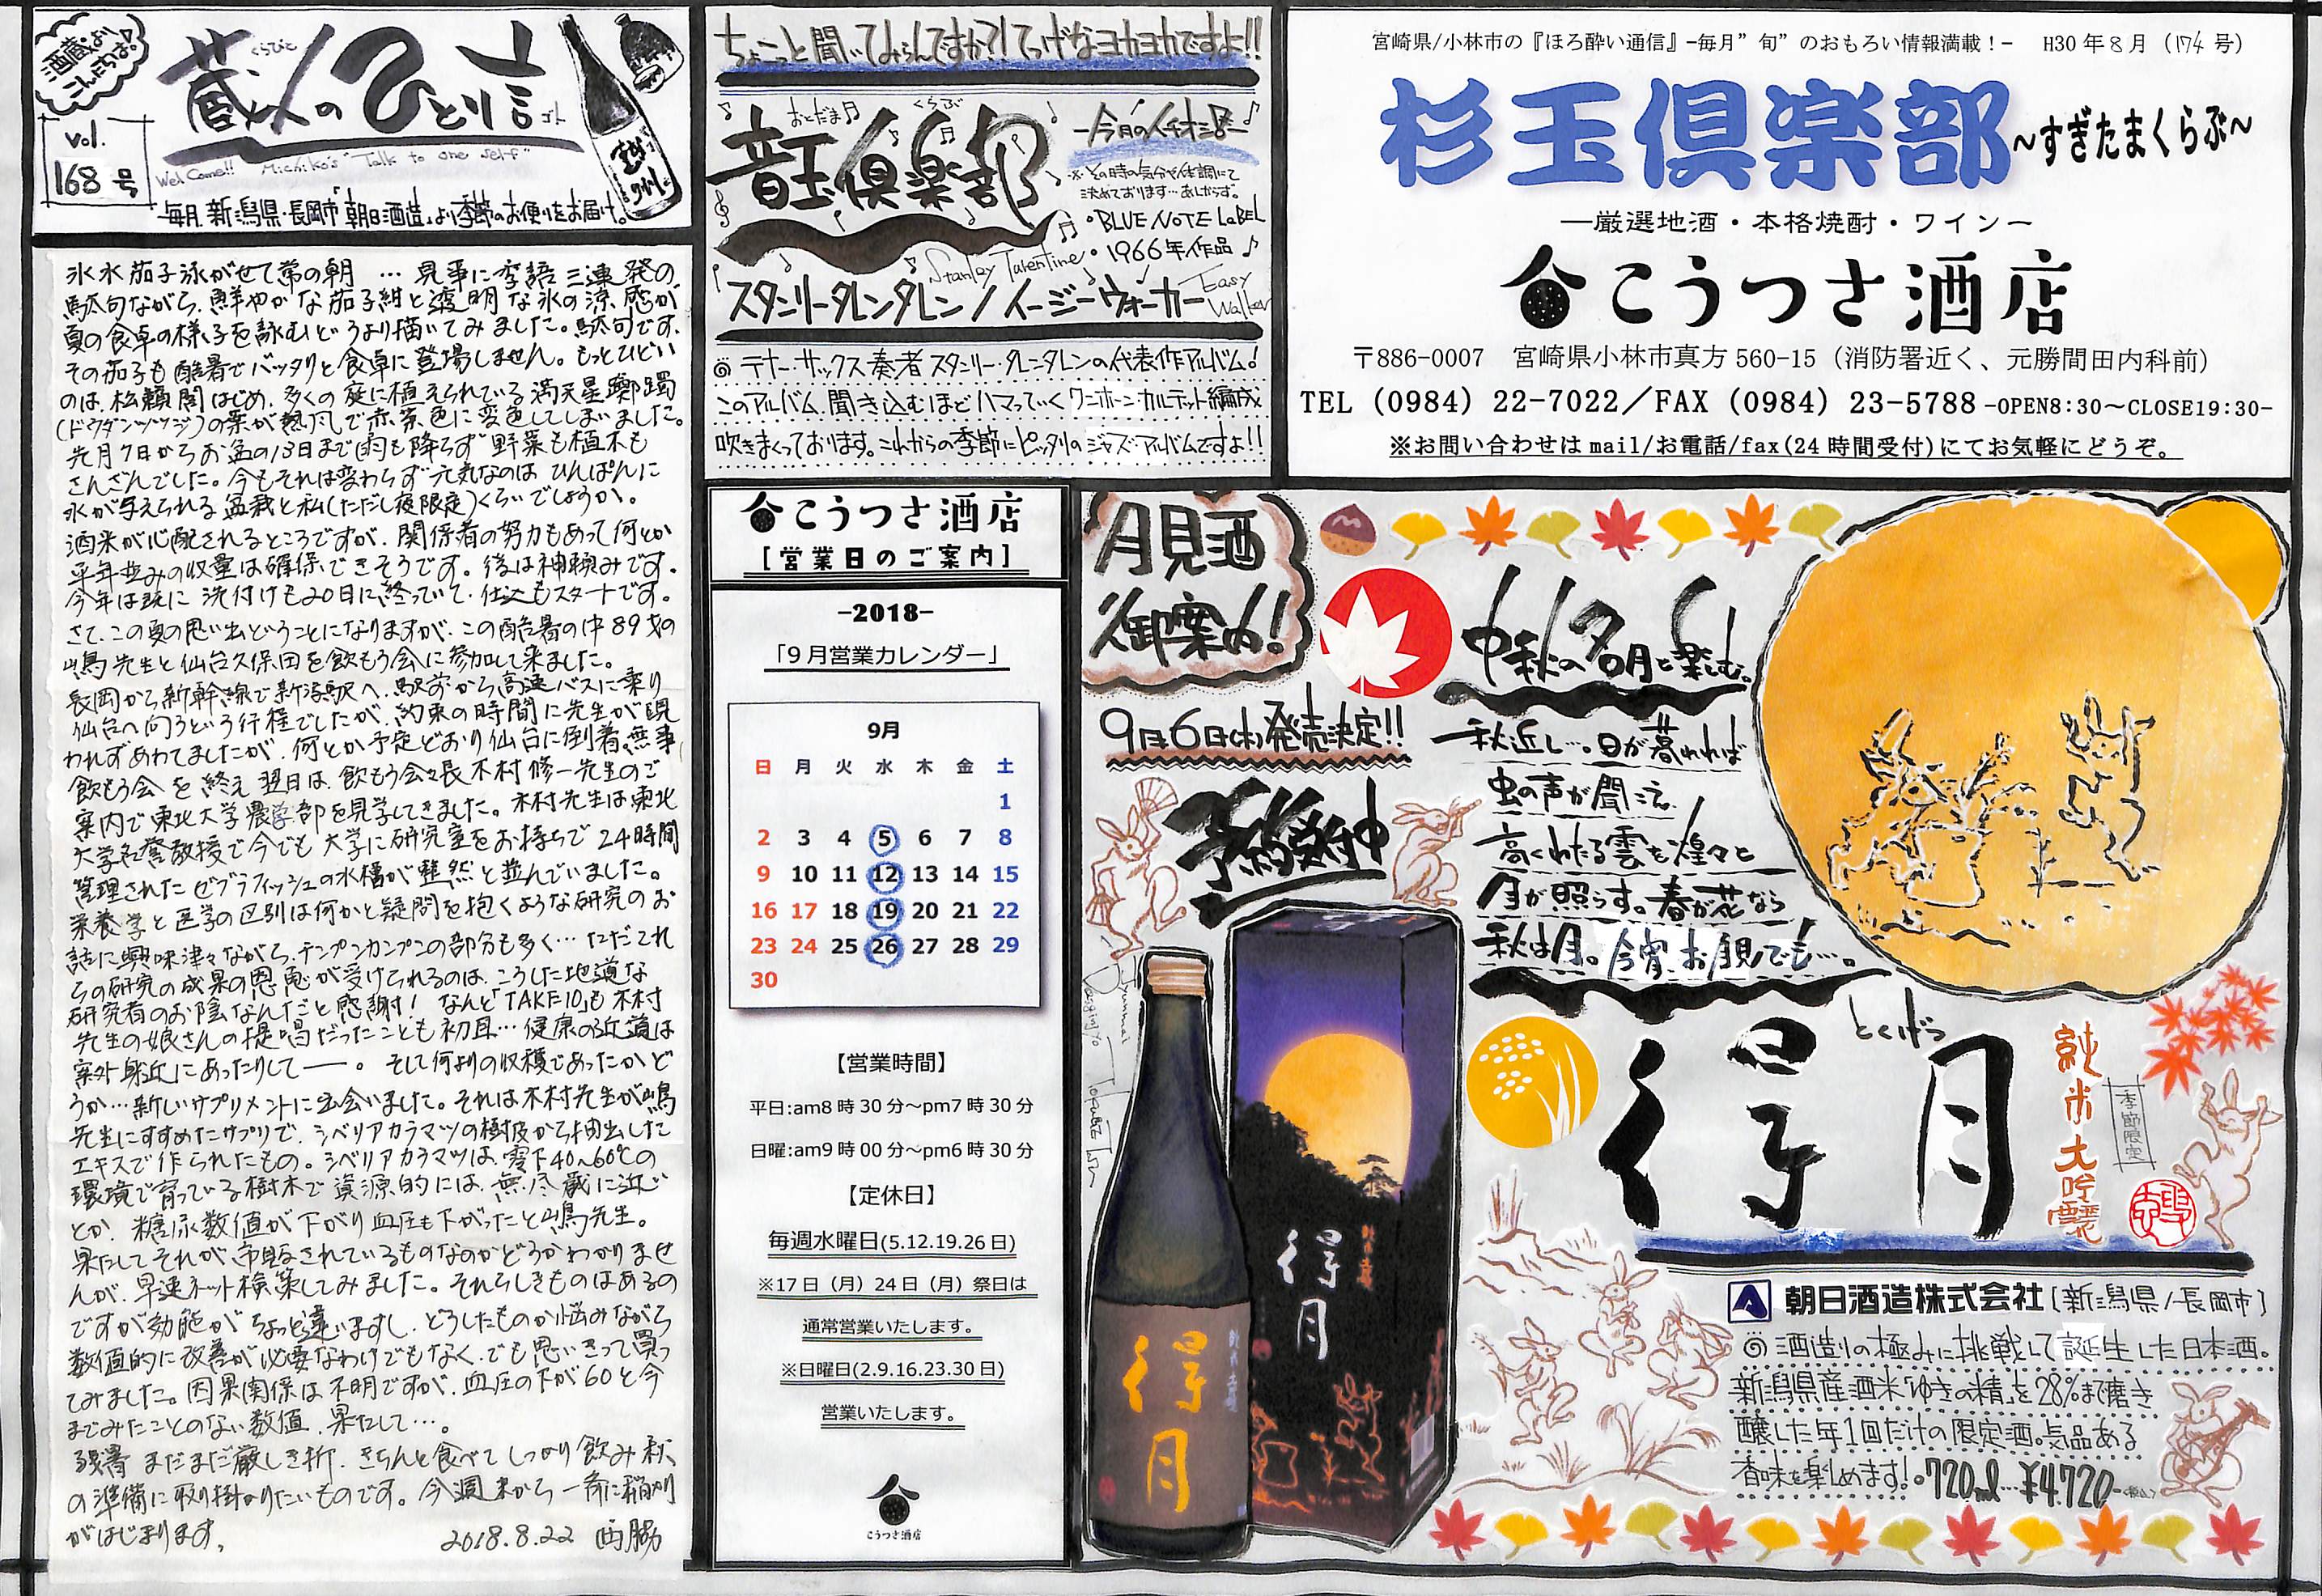 宮崎県/小林市の『ほろ酔い通信』-毎月”旬”のおもろい情報満載！- H30年8月（174号）
杉玉倶楽部～すぎたまくらぶ～
―厳選地酒・本格焼酎・ワイン―
こうつさ酒店
〒886-0007 宮崎県小林市真方560-15（消防署近く、元勝間田内科前）
TEL (0984) 22-7022／FAX (0984) 23-5788 -OPEN8:30～CLOSE19:30-
※お問い合わせは mail/お電話/fax(24時間受付)にてお気軽にどうぞ。
ちょこっと聞いてみらんですか?!てげなヨカヨカですよ!!
おとだま くらぶ
音玉倶楽部
-今月のイチオシ-
※その時の気分や体調にて
決めております…あしからず。
・BLUE NOTE LABEL
・1966年作品
スタンリータレンタレン/イージーウォーカー
Easy
Walker
◎テナー・サックス奏者スタンリー・タレンタレンの代表作アルバム!
このアルバム、聞き込むほどハマっていくワンホーンカルテット編成
吹きまくっております。これからの季節にピッタリのジャズ・アルバムですよ!!
蔵人のひとり言
くらびと
ゴト
vol.
168号
Wel Come!! Michiko's "Talk to one self"
毎月、新潟県・長岡市「朝日酒造」より季節のお便りをお届け。
氷水茄子泳がせて常の朝 … 見事に季語三連発の
駄句ながら、鮮やかな茄子紺と透明な氷の涼感が
夏の食卓の様子を詠むというより描いてみました。駄句です。
その茄子も酷暑でバッタリと食卓に登場しません。もっとひどい
のは、松籟閣はじめ、多くの庭に植えられている満天星躑躅
(ドウダンツツジ)の葉が熱風で赤茶色に変色してしまいました。
先月7日からお盆の13日まで雨も降らず野菜も植木も
さんざんでした。今もそれは変わらず元気なのはひんぱんに
水が与えられる盆栽と私(ただし夜限定)くらいでしょうか。
酒米が心配されるところですが、関係者の努力もあって何とか
平年並みの収量は確保できそうです。後は神頼みです。
今年は既に洗付けも20日に終っていて、仕込もスタートです。
さて、この夏の思い出ということになりますが、この酷暑の中89才の
嶋先生と仙台久保田を飲もう会に参加して来ました。
長岡から新幹線で新潟駅へ、駅前から高速バスに乗り
仙台へ向うという行程でしたが、約束の時間に先生が現
われずあわてましたが、何とか予定どおり仙台に到着、無事
飲もう会を終え翌日は、飲もう会会長木村修一先生のご
案内で東北大学農学部を見学してきました。木村先生は東北
大学名誉教授で今でも大学に研究室をお持ちで24時間
管理されたゼブラフィッシュの水槽が整然と並んでいました。
栄養学と医学の区別は何かと疑問を抱くような研究のお
話に興味津々ながら、チンプンカンプンの部分も多く… ただこれ
らの研究の成果の恩恵が受けられるのは、こうした地道な
研究者のお陰なんだと感謝! なんと「TAKE10」も木村
先生の娘さんの提唱だったことも初耳… 健康の近道は
案外身近にあったりして――。そして何よりの収穫であったかど
うか… 新しいサプリメントに出会いました。それは木村先生が嶋
先生にすすめたサプリで、シベリアカラマツの樹皮から抽出した
エキスで作られたもの。シベリアカラマツは、零下40~60℃の
環境で育っている樹木で資源的には、無尽蔵に近い
とか、糖尿数値が下がり血圧も下がったと嶋先生。
果たしてそれが、市販されているものなのかどうかわかりませ
んが、早速ネット検索してみました。それらしきものはあるの
ですが効能がちょっと違いますし、どうしたものか悩みながら
数値的に改善が必要なわけでもなく、でも思いきって買っ
てみました。因果関係は不明ですが、血圧の下が60と今
までみたことのない数値、果たして…。
残暑まだまだ厳しき折、きちんと食べてしっかり飲み秋
の準備に取り掛かりたいものです。今週末から一斉に稲刈
がはじまります。
2018.8.22 西脇
こうつさ酒店
[営業日のご案内]
-2018-
「9月営業カレンダー」
9月
日 月 火 水 木 金 土
1
2 3 4 5 6 7 8
9 10 11 12 13 14 15
16 17 18 19 20 21 22
23 24 25 26 27 28 29
30
【営業時間】
平日:am8時30分～pm7時30分
日曜:am9時00分～pm6時30分
【定休日】
毎週水曜日(5.12.19.26日)
※17日（月）24日（月）祭日は
通常営業いたします。
※日曜日(2.9.16.23.30日)
営業いたします。
こうつさ酒店
月見酒
御案内!
9月6日(木)発売決定!!
予約受付中
中秋の名月を楽しむ。
秋近し…。日が暮れれば
虫の声が聞こえ、
高くわたる雲を煌々と
月が照らす。春が花なら
秋は月。今宵お月見でも…。
とくげつ
得月
純米大吟醸
季節限定
得月
得月
朝日酒造株式会社[新潟県/長岡市]
◎酒造りの極みに挑戦して誕生した日本酒。
新潟県産酒米「ゆきの精」を28%まで磨き
醸した年1回だけの限定酒。気品ある
香味を楽しめます! ○720ml…¥4,720-